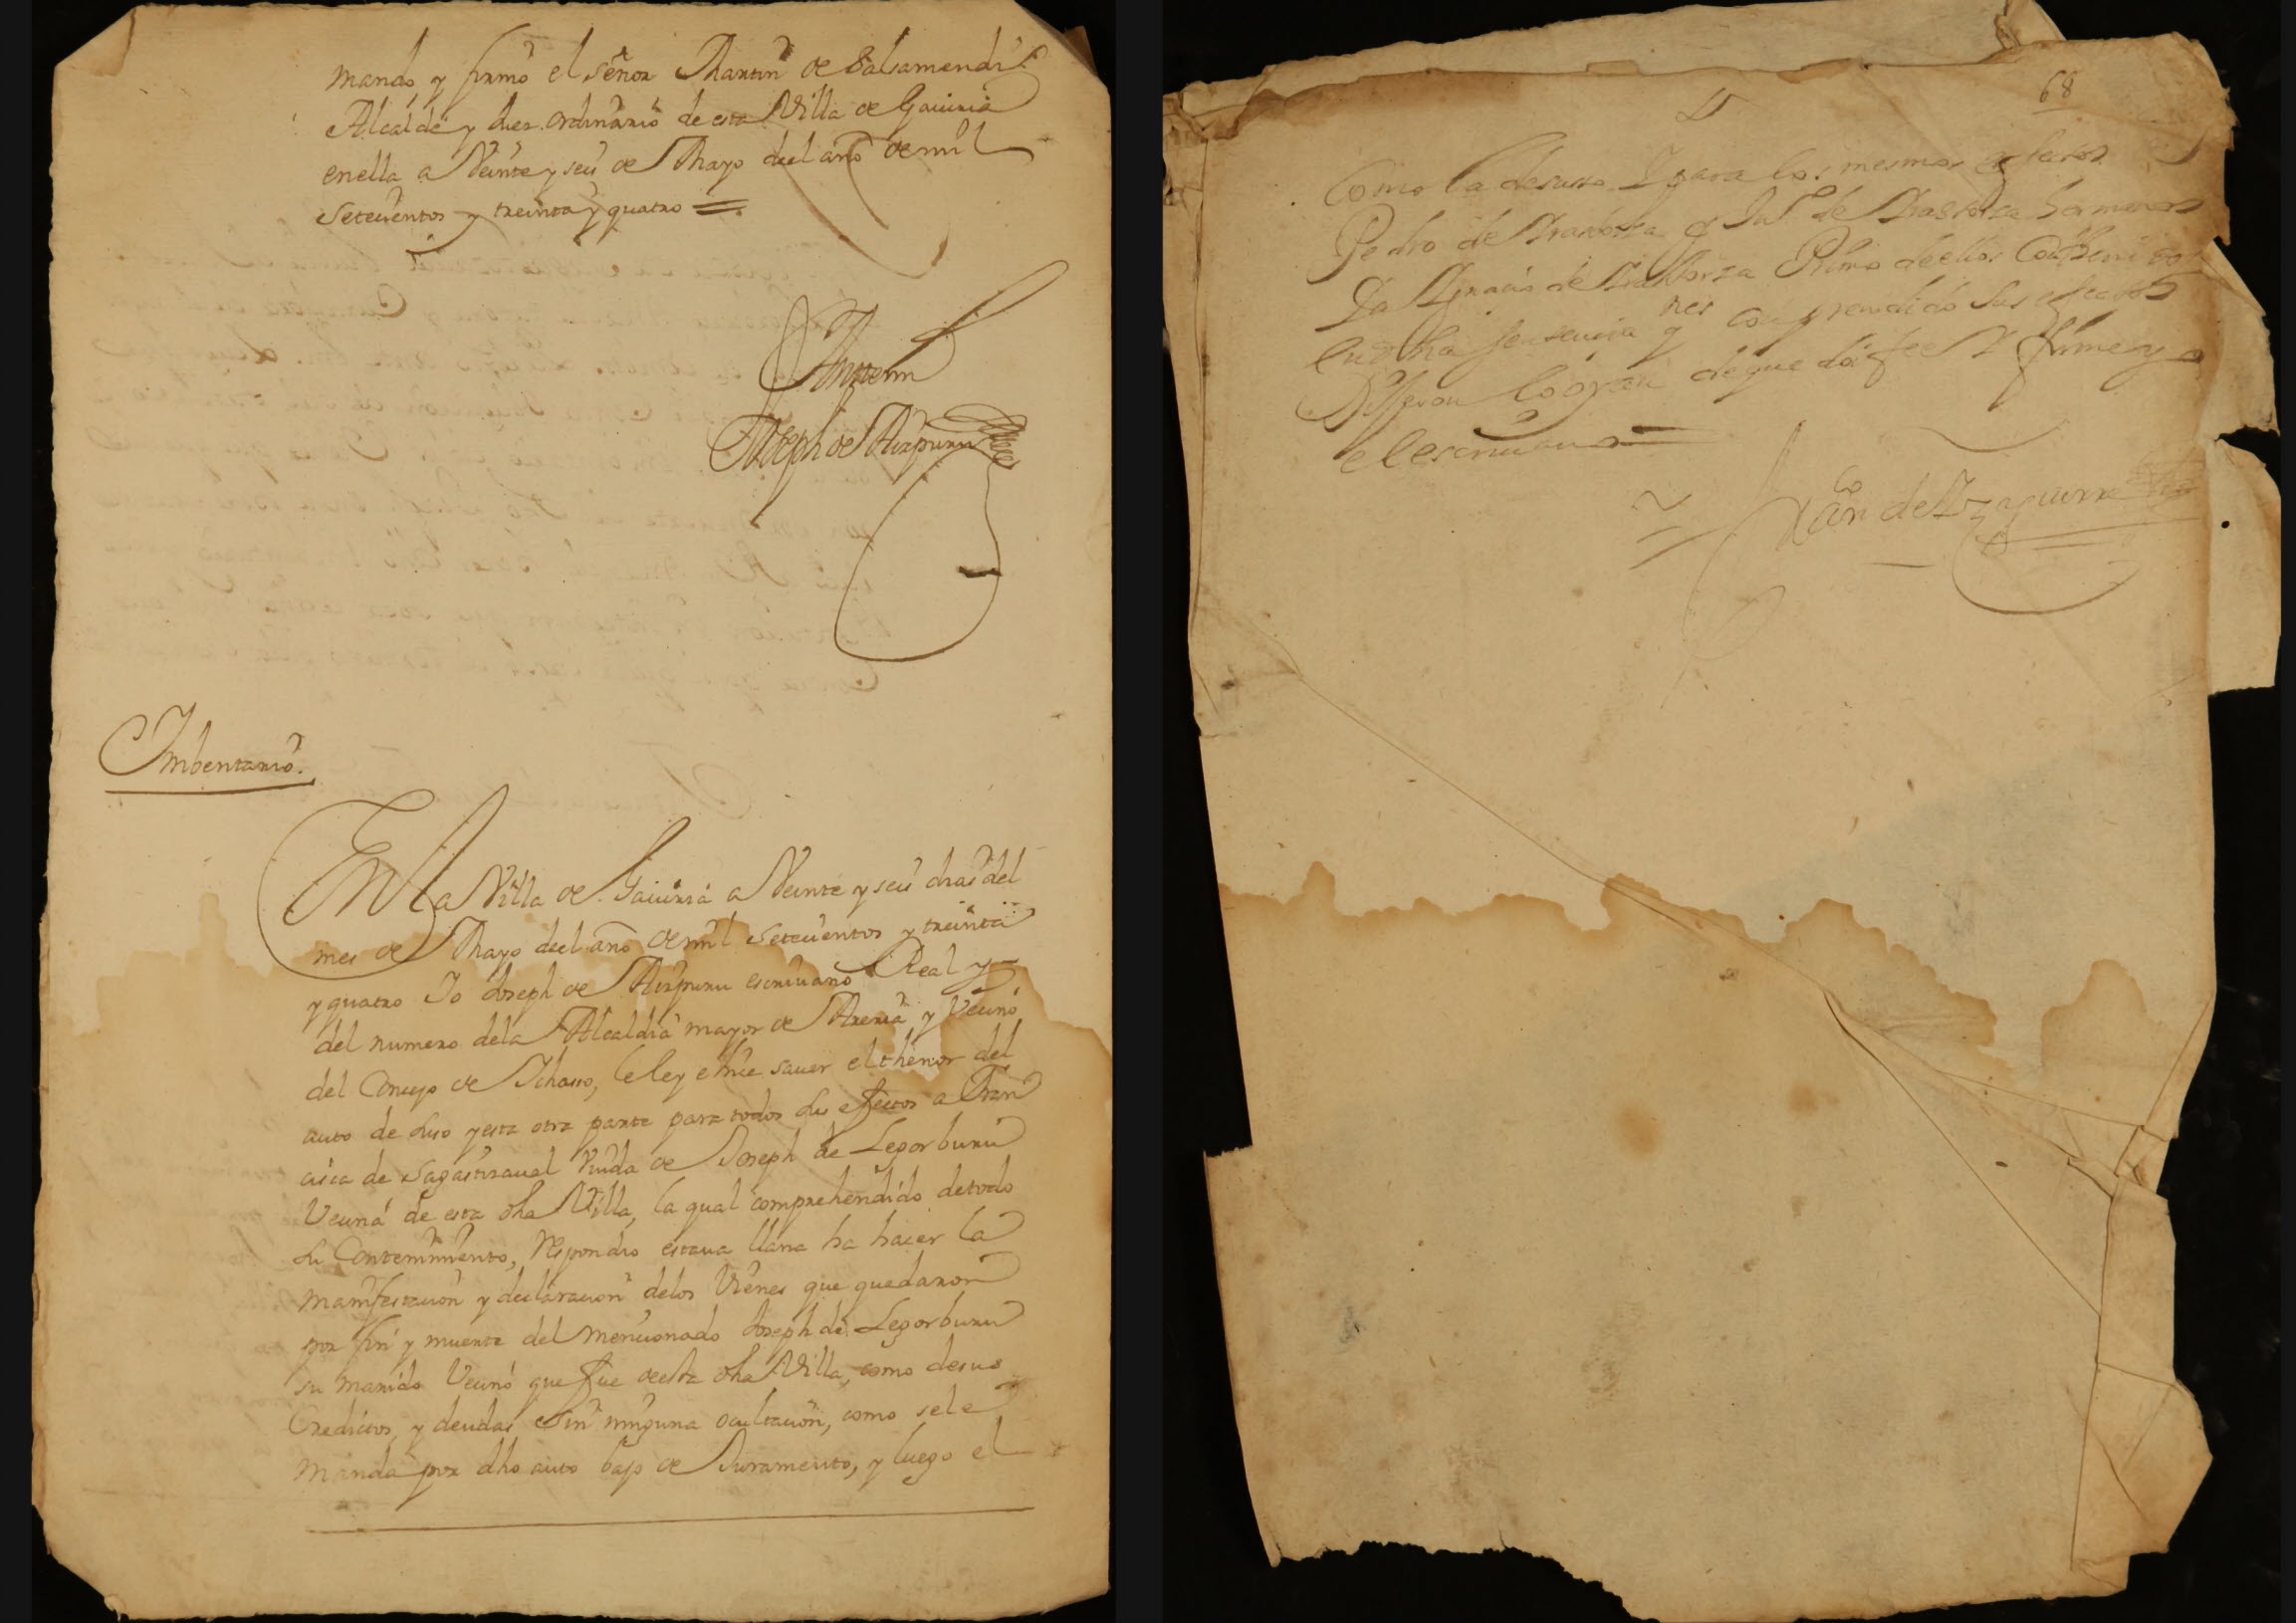 mando, y firmó el señor Martin de Salsamendi
Alcalde y Juez ordinario de esta Villa de Gaviria
en ella a Veinte y seis de Mayo del año de mil
Setecientos y treinta y quatro =
Antemi
Joseph de Aizpuru
Imbentario.
En la Villa de Gaviria a Veinte y seis dias del
mes de Mayo del año de mil setecientos y treinta
y quatro Yo Joseph de Aizpuru escrivano Real y
del numero de la Alcaldia mayor de Areria y Vecino
del Concejo de Ichasso, le ley e hice saver el thenor del
auto de suso y esta otra parte para todos sus efectos a Fran
cisca de Sagastizaval Viuda de Joseph de Legorburu
Vecina de esta dha Villa, la qual comprehendido de todo
su Contenimiento, Respondio estava llana ha hacer la
manifestacion y declaracion de los Vienes que quedaron
por fin y muerte del mencionado Joseph de Legorburu
su marido Vecino que fue de esta dha Villa, como de sus
Creditos, y deudas sin ninguna ocultacion, como se le
manda por dho auto bajo de Juramento, y luego el
68
Como la de suso Y para los mesmos efectos
Pedro de y de hermanos
Ignacio de Primo de ellos
sentencia y comprendido sus efectos
Dijeron lo oyan de que doi fee Y firme yo
el escrivano =